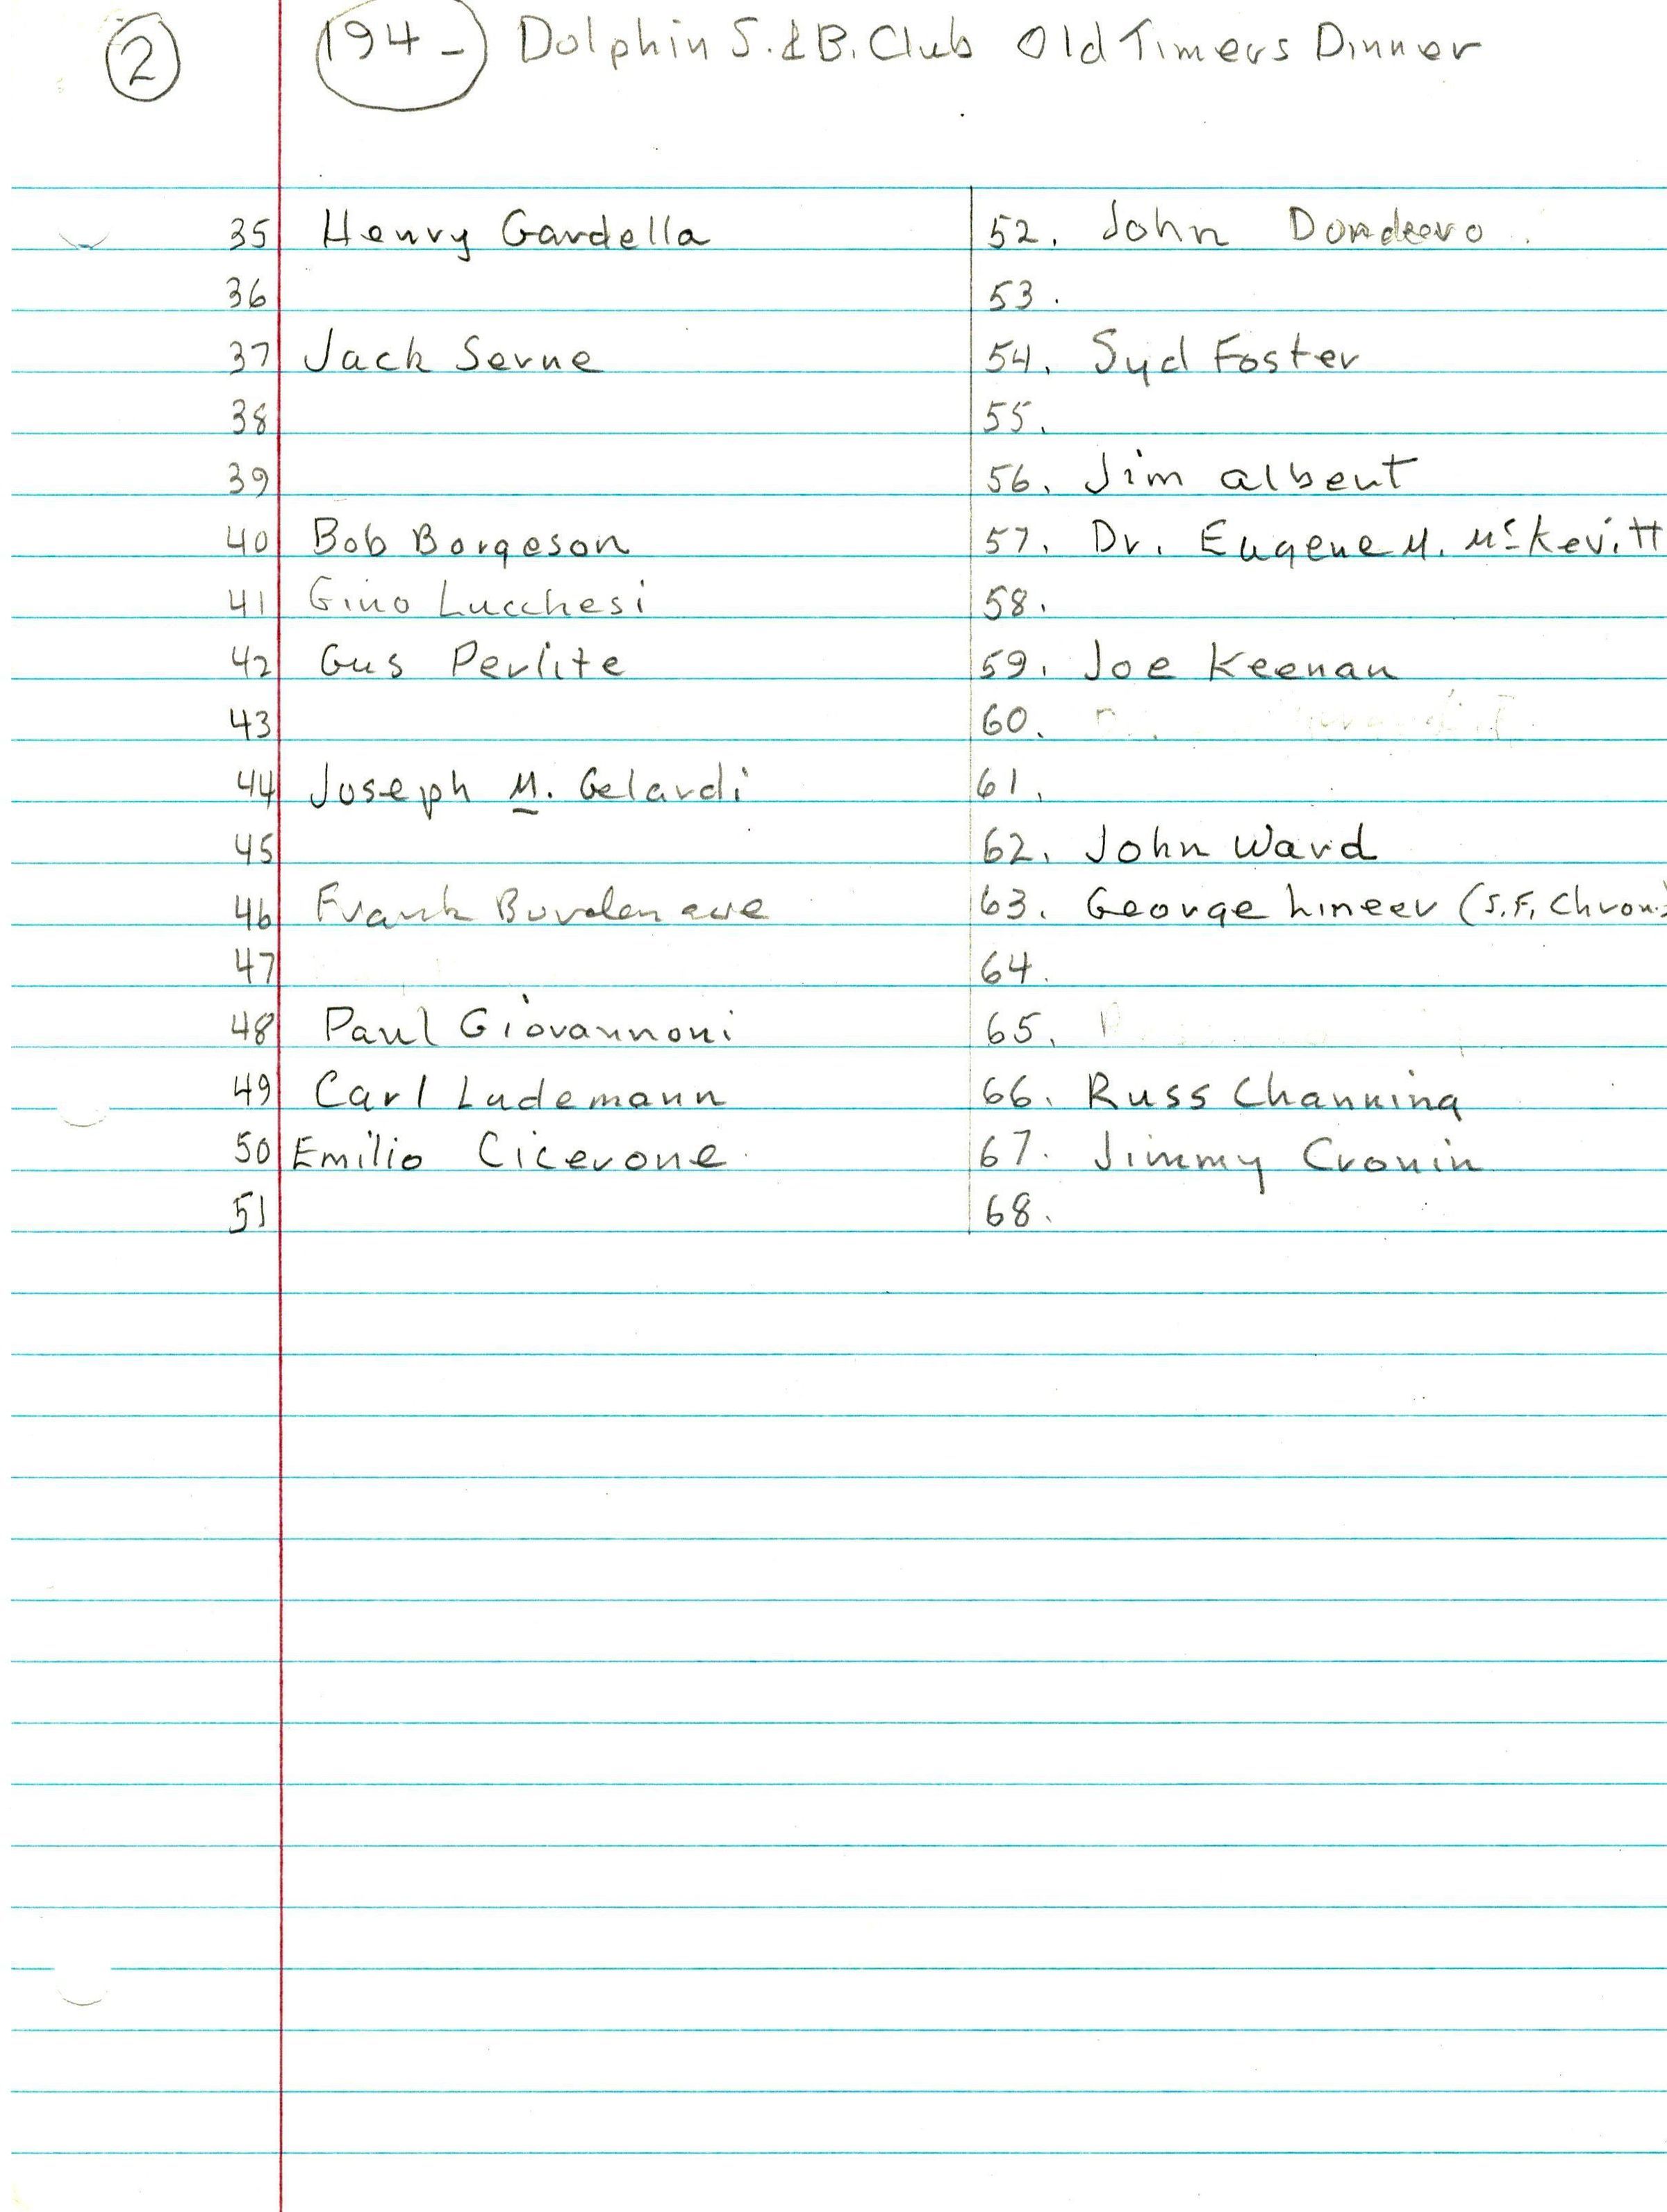 2 194- Dolphin S. & B. Club Old Timers Dinner
35 Henry Gardella
36
37 Jack Serne
38
39
40 Bob Borgeson
41 Gino Lucchesi
42 Gus Perlite
43
44 Joseph M. Gelardi
45
46 Frank Burdenave
47
48 Paul Giovannoni
49 Carl Ludemann
50 Emilio Cicerone
51
52. John Dondero
53.
54. Syd Foster
55.
56. Jim albert
57. Dr. Eugene M. McKevitt
58.
59. Joe Keenan
60.
61.
62. John Ward
63. George Lineer (S.F. Chron.)
64.
65.
66. Russ Channing
67. Jimmy Cronin
68.